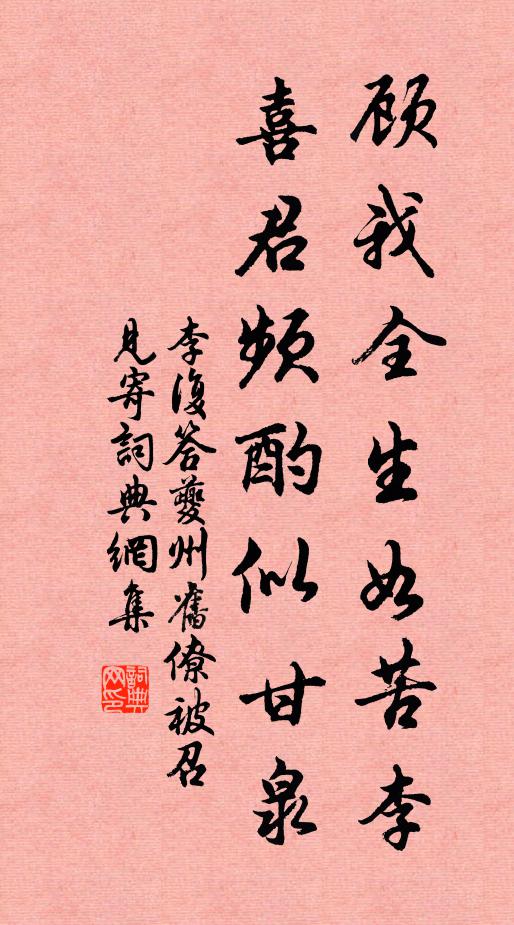 顾我全生如苦李
喜君频酌似甘泉
李復答夔州舊僚被召
見寄詞典網集
詞典網印